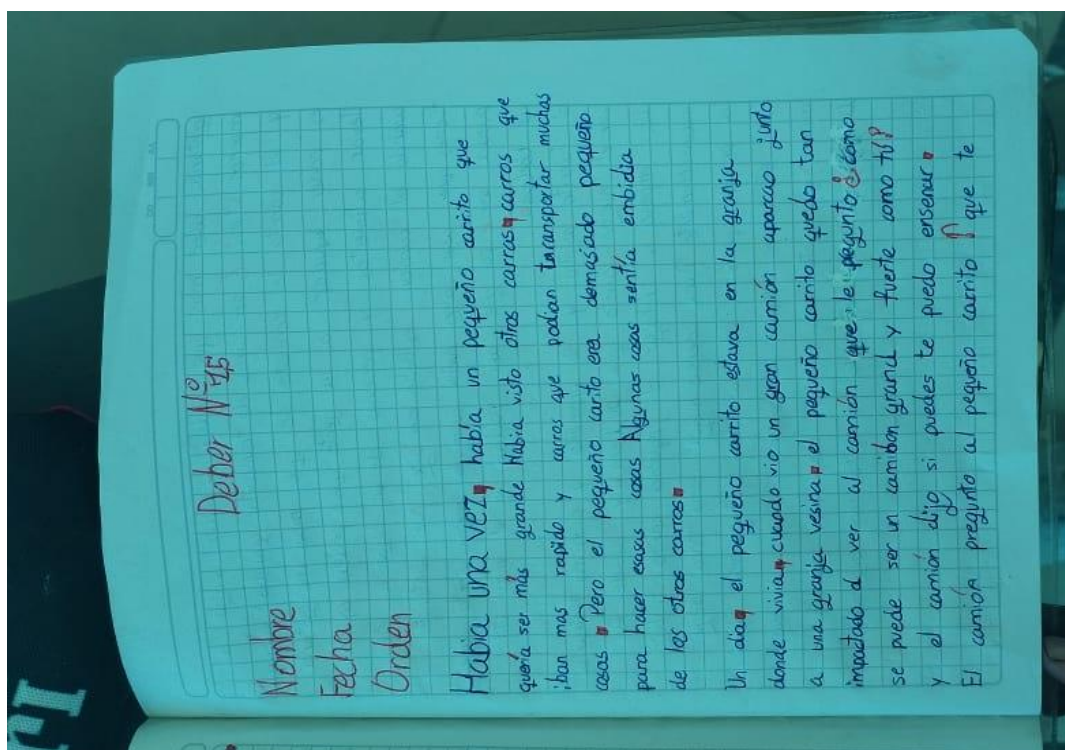 Deber Nº 15
Nombre
Fecha
Orden
Habia una vez, había un pequeño carrito que
quería ser más grande Habia visto otros carros, carros que
iban mas rapido y carros que podian taransportar muchas
cosas. Pero el pequeño carito era demasiado pequeño
para hacer esasas cosas Algunas cosas sentía embidia
de los otros carros.
Un dia, el pequeño carrito estava en la granja
donde vivia, cuando vio un gran camión aparcao junto
a una granja vesina. el pequeño carrito quedo tan
impactado a ver al camión que le pegunto ¿como
se puede ser un camibon grand y fuerte como tú?
y el camión dijo si puedes te puedo ensenar.
El camión pregunto al pequeño carrito ¿ que te